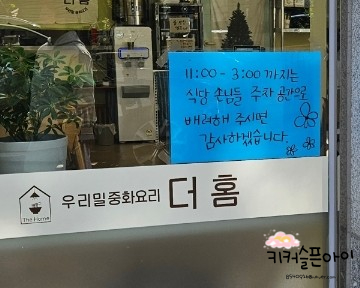 더 홈
11:00 - 3:00 까지는
식당 손님들 주차 공간으로
배려해 주시면
감사하겠습니다.
The Home
우리밀중화요리 더 홈
키커슬픈아이